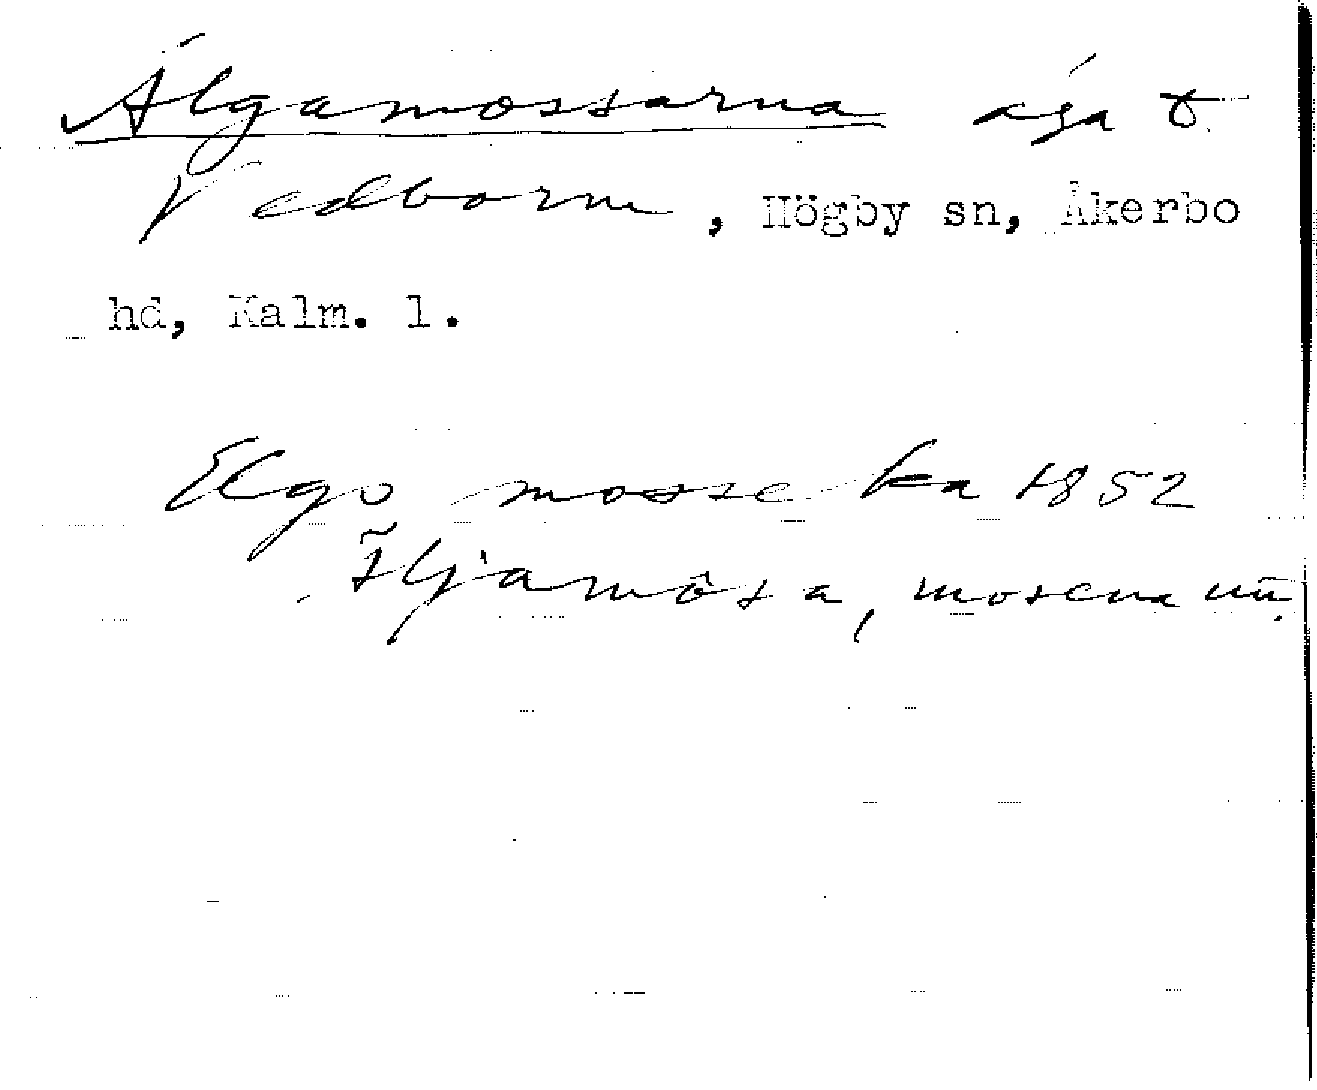 Älgamossarna äga t
Vedborm, Högby sn, Åkerbo
hd, Kalm. l.
Elgo mosse ka 1852
Iljamosa, mosena